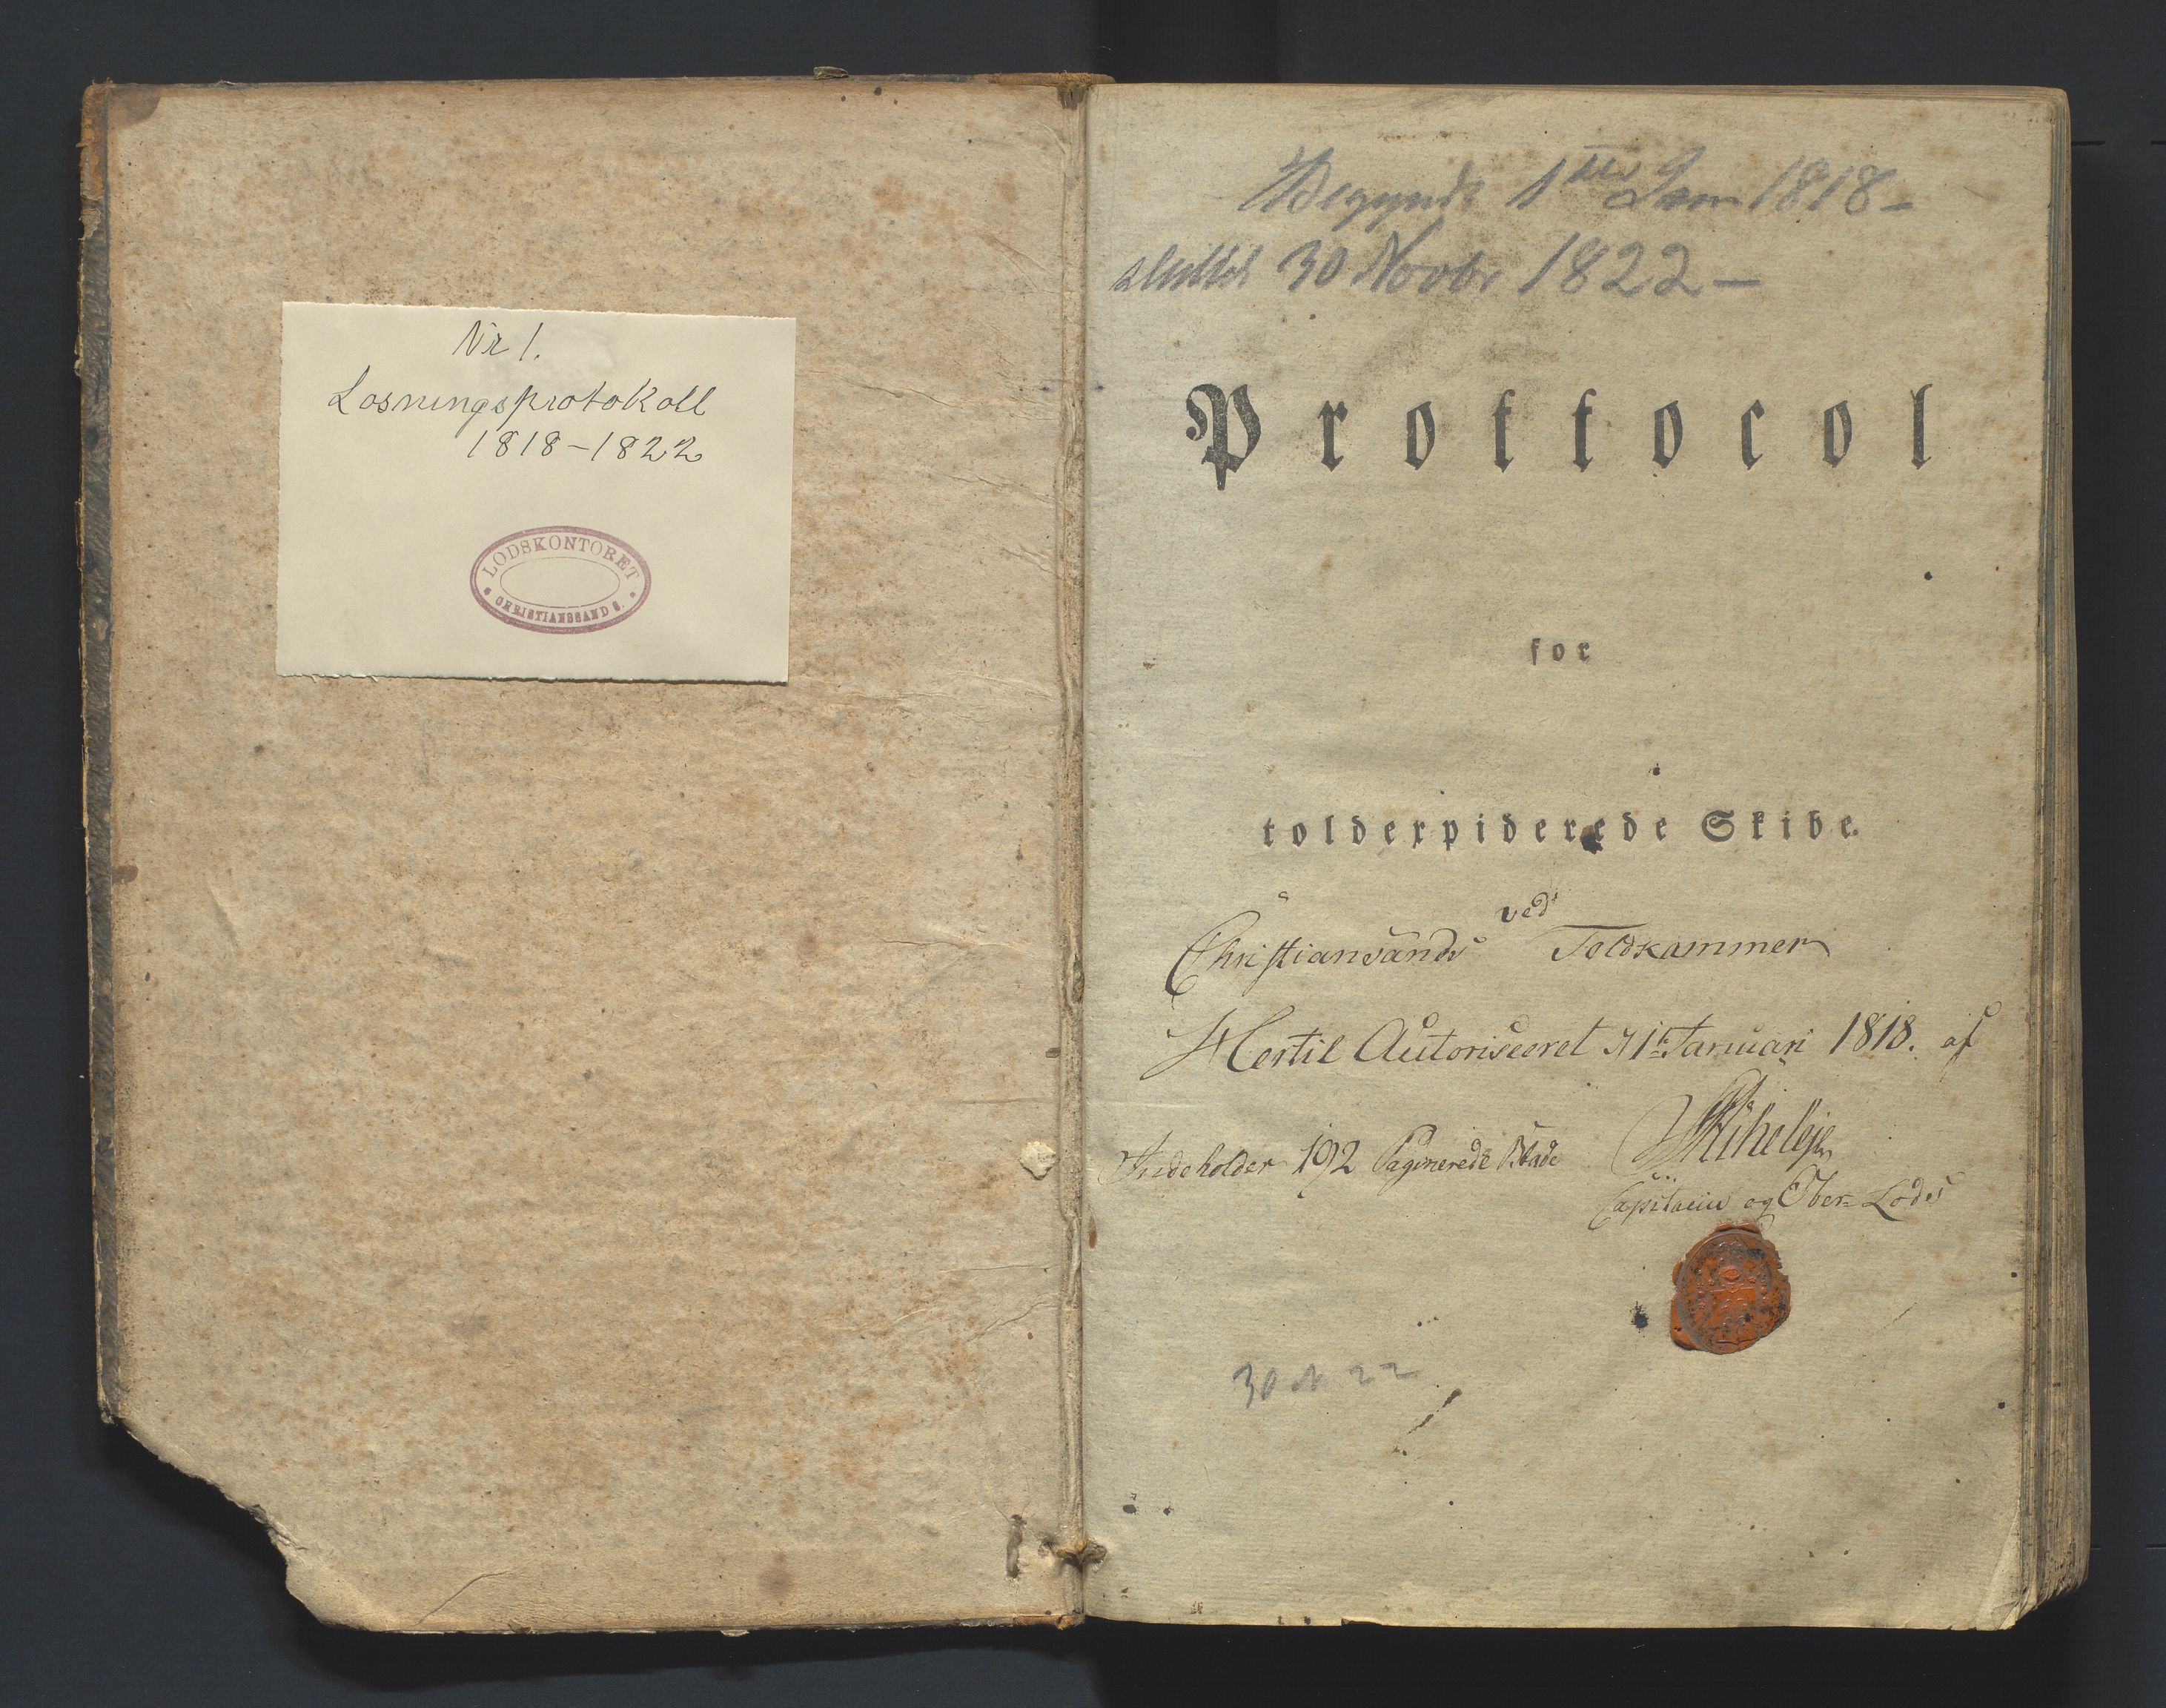 Nr 1.
Losningsprotokoll
1818-1822
LODSKONTORET
CHRISTIANSSAND S.
Begyndt 1ste Jan 1818 -
sluttet 30 Novbr 1822 -
Prottocol
for
toldexpiderede Skibe.
ved
Christiansands Toldkammer
Hertil Autoriseeret d 1te Januari 1818. af
Indeholder 192 Paginerede Blade
Capitain og Ober-Lods
30 N 22